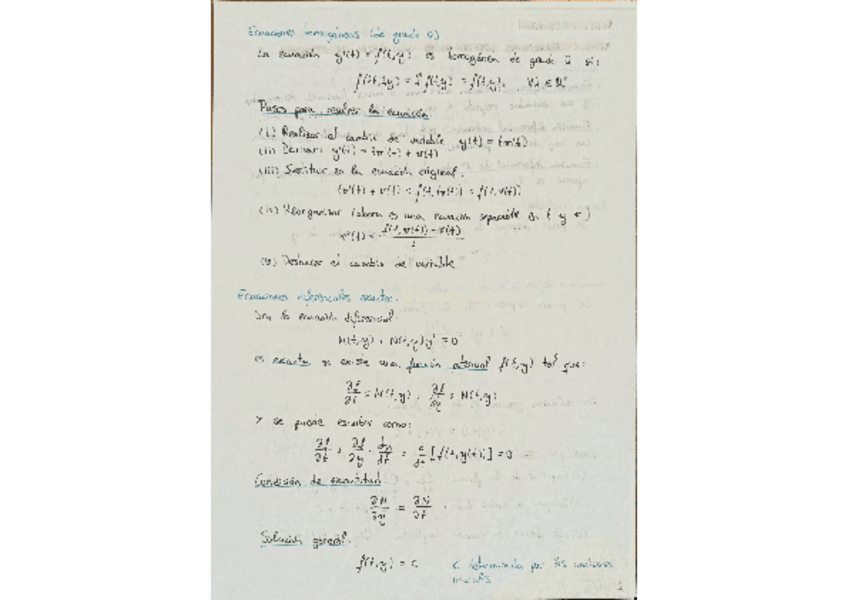 Ecuaciones homogéneas (de grado 0)
La ecuación y'(t) = f(t,y) es homogénea de grado 0 si:
f(λt, λy) = λ⁰ f(t,y) = f(t,y), ∀λ ∈
Pasos para resolver la ecuación
(i) Realizar el cambio de variable y(t) = t v(t)
(ii) Derivar: y'(t) = t v'(t) + v(t)
(iii) Sustituir en la ecuación original.
t v'(t) + v(t) = f(t, t v(t)) = f(1, v(t))
(iv) Reorganizar (ahora es una ecuación separable en t y v)
v'(t) = f(1, v(t)) - v(t) / t
(v) Deshacer el cambio de variable.
Ecuaciones diferenciales exactas.
Sea la ecuación diferencial:
M(t,y) + N(t,y) y' = 0
es exacta si existe una función potencial f(t,y) tal que:
∂f/∂t = M(t,y) , ∂f/∂y = N(t,y)
Y se puede escribir como:
∂f/∂t + ∂f/∂y · dy/dt = d/dt [f(t, y(t))] = 0
Condición de exactitud
∂M/∂y = ∂N/∂t
Solución general.
f(t,y) = C
C determinada por las condiciones
iniciales